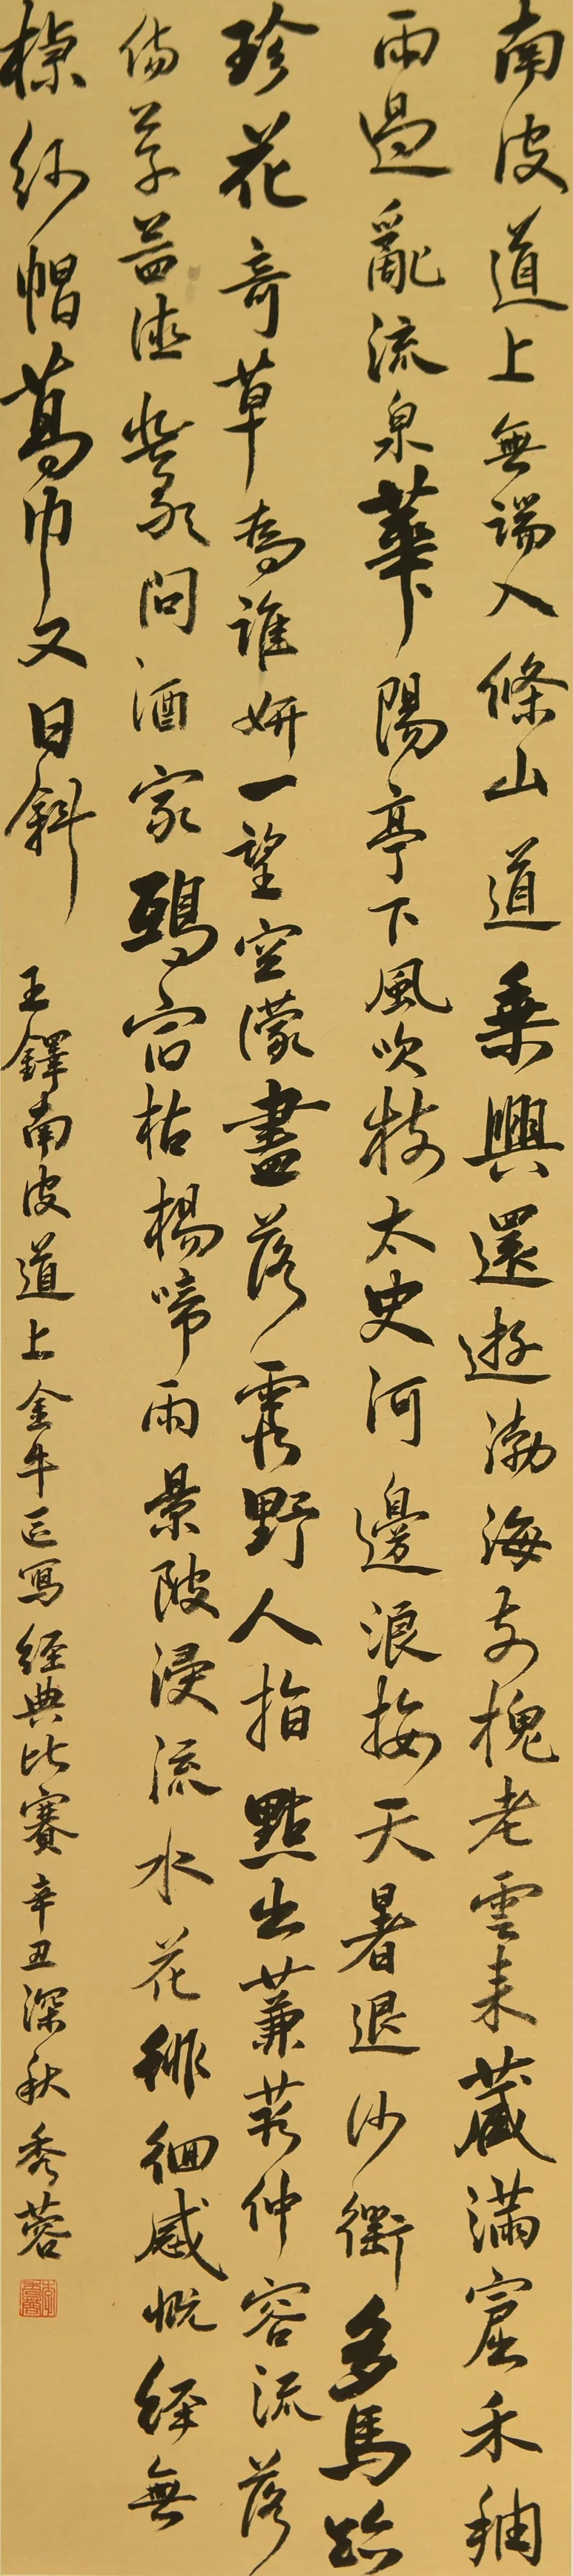 南皮道上無端入條山道乘興還遊渤海東槐老雲來藏滿窟禾稠
雨過亂流泉華陽亭下風吹枝太史河邊浪接天暑退沙衝多馬跡
珍花奇草為誰妍一望空濛盡落霞野人指點出蒹葭仲容流落
傷芳問酒家鵶宿枯楊啼雨景陂浸流水花徘徊感慨經無
標紗帽葛巾又日斜
王鐸南皮道上金牛區寫經典比賽辛丑深秋秀蓉